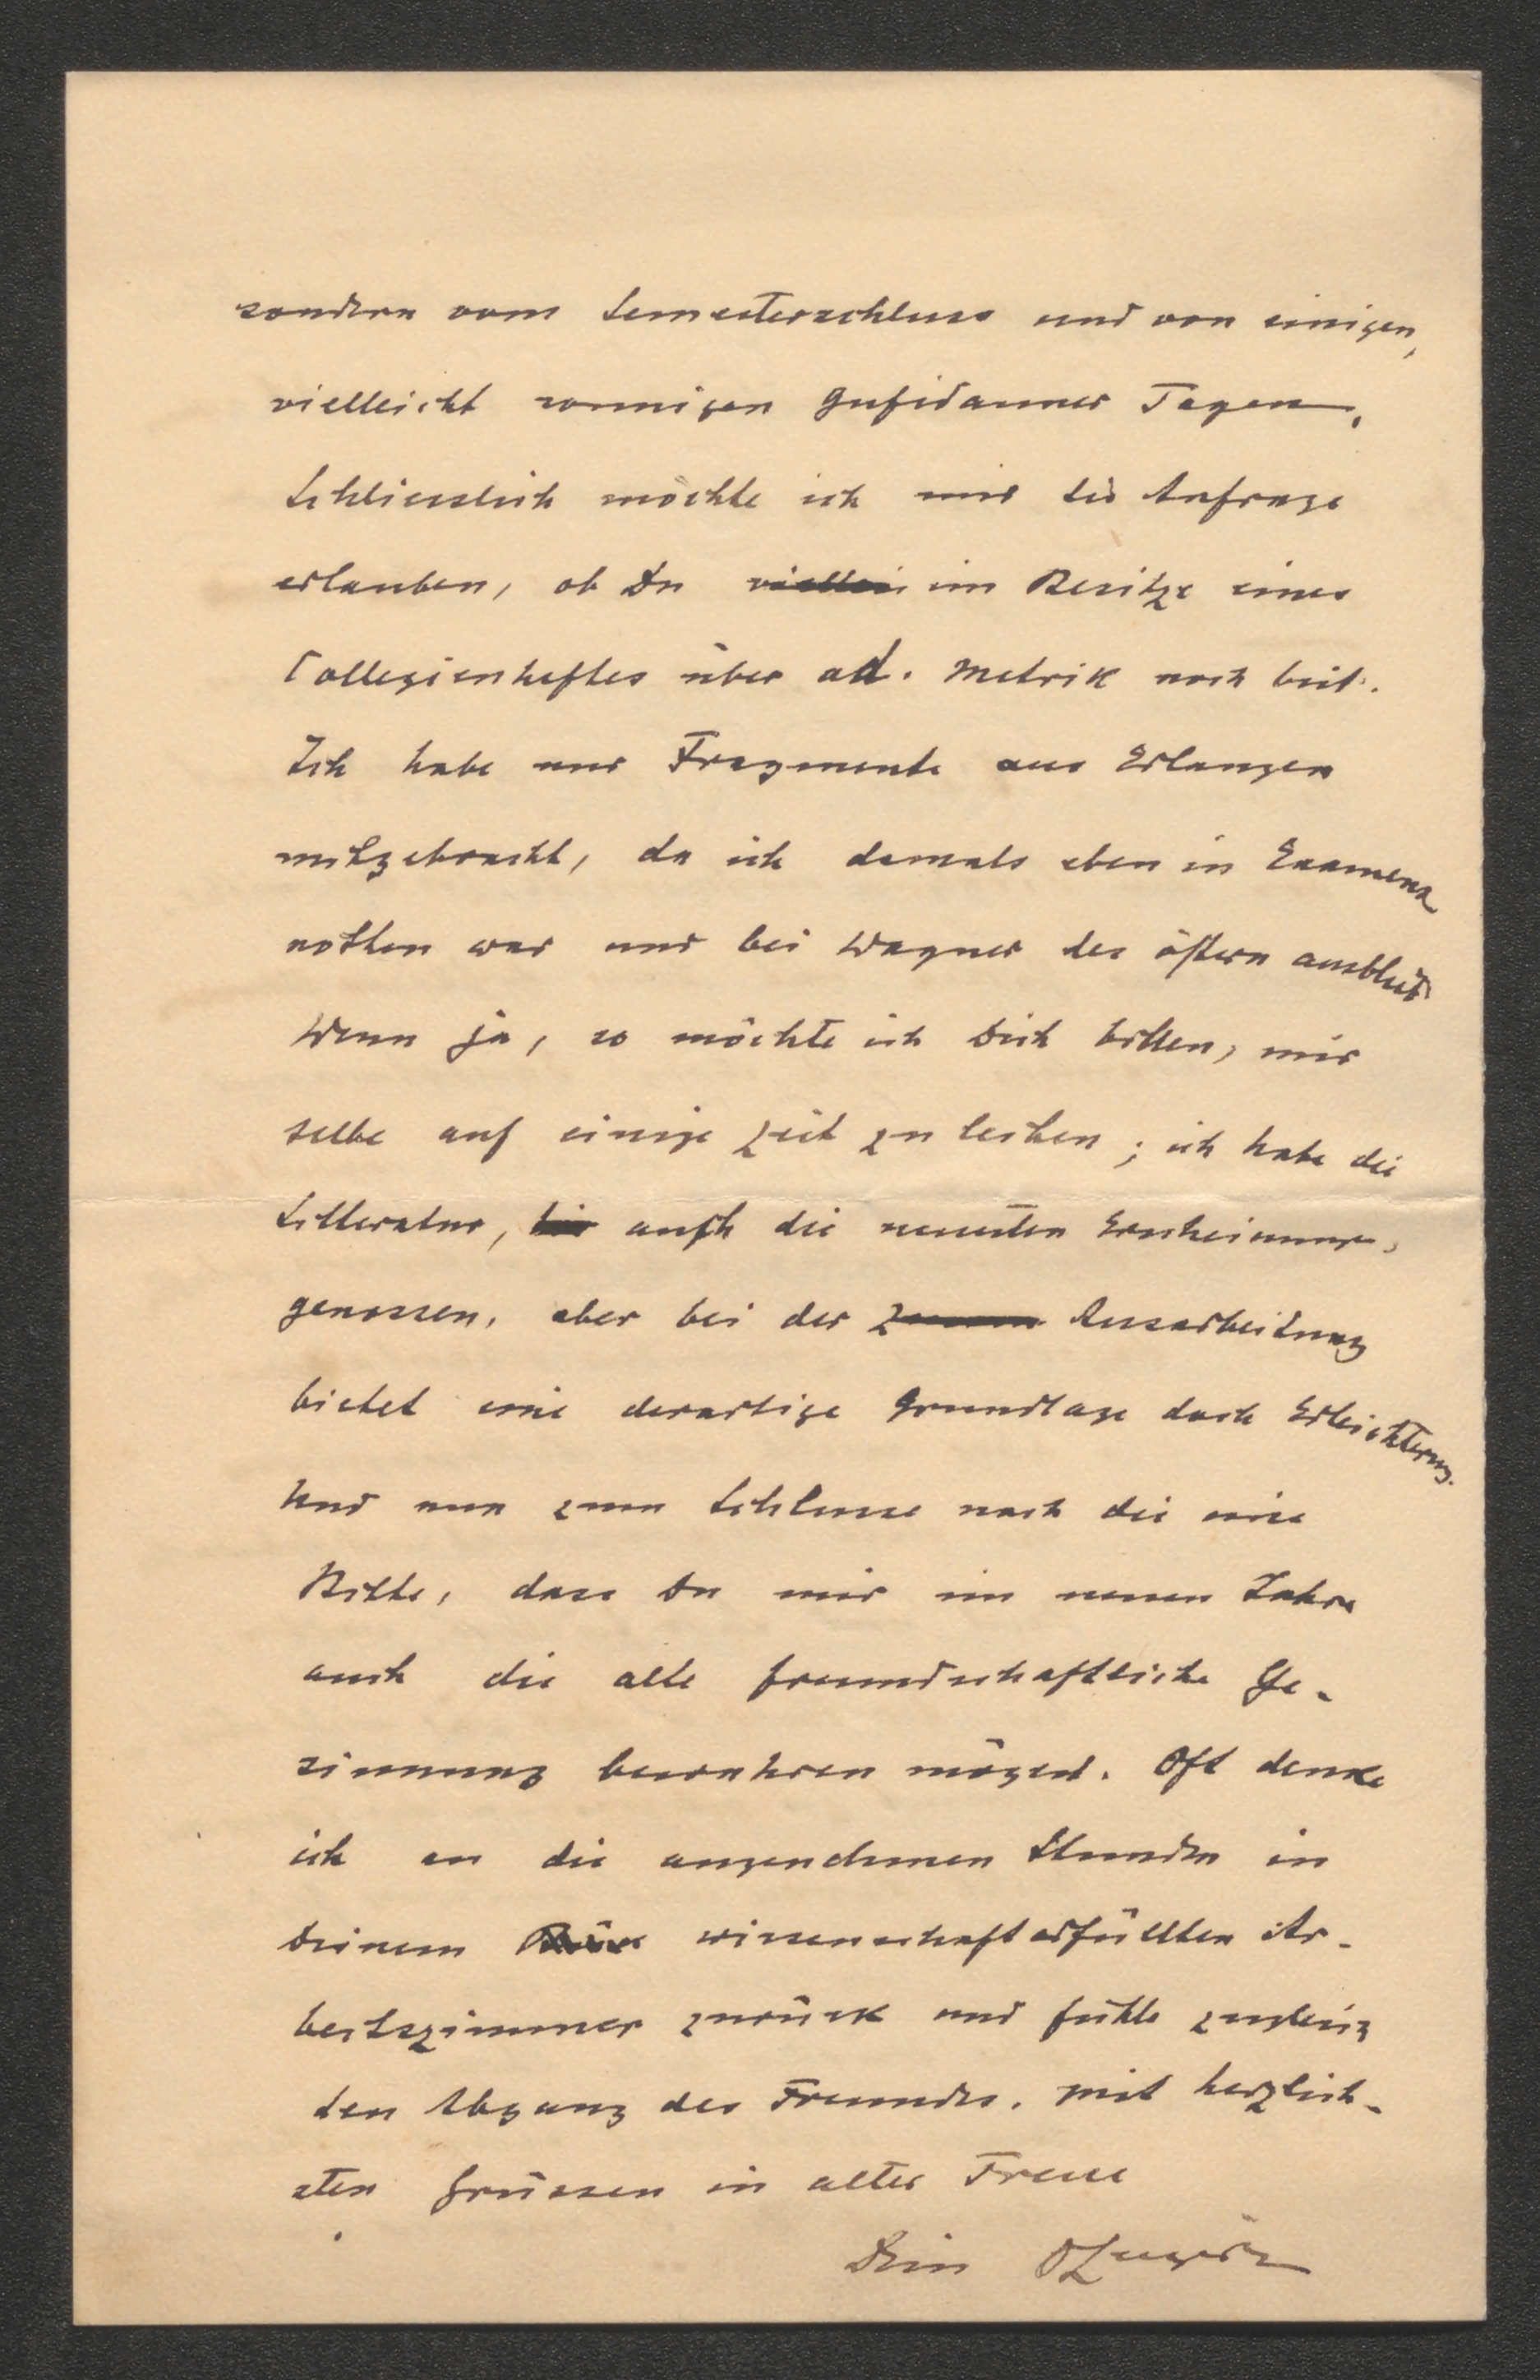 sondern vom Semesterschluss und von einigen,
vielleicht sonnigen Gufidauner Tagen.
Schliesslich möchte ich mir die Anfrage
erlauben, ob Du im Besitze eines
Collegienheftes über ad. Metrik noch bist.
Ich habe nur Fragmente aus Erlangen
mitgebracht, da ich damals eben in Examens
nöthen war und bei Wagner des öftern ausblieb
Wenn ja, so möchte ich Dich bitten, mir
selbe auf einige Zeit zu leihen; ich habe die
Litteratur, auch die neuesten
genossen, aber bei der Ausarbeitung
bietet eine derartige Grundlage doch Erleichterung.
Und nun zum Schlusse noch die eine
Bitte, dass Du mir im neuen Jahre
auch die alte freundschaftliche Ge-
sinnung bewahren mögest. Oft denke
ich an die angenehmen Stunden in
Deinem wissenschafterfüllten Ar-
beitszimmer zurück und fühle
den Abgang des Freundes. Mit herzlich-
sten Grüssen in alter Treue
Dein